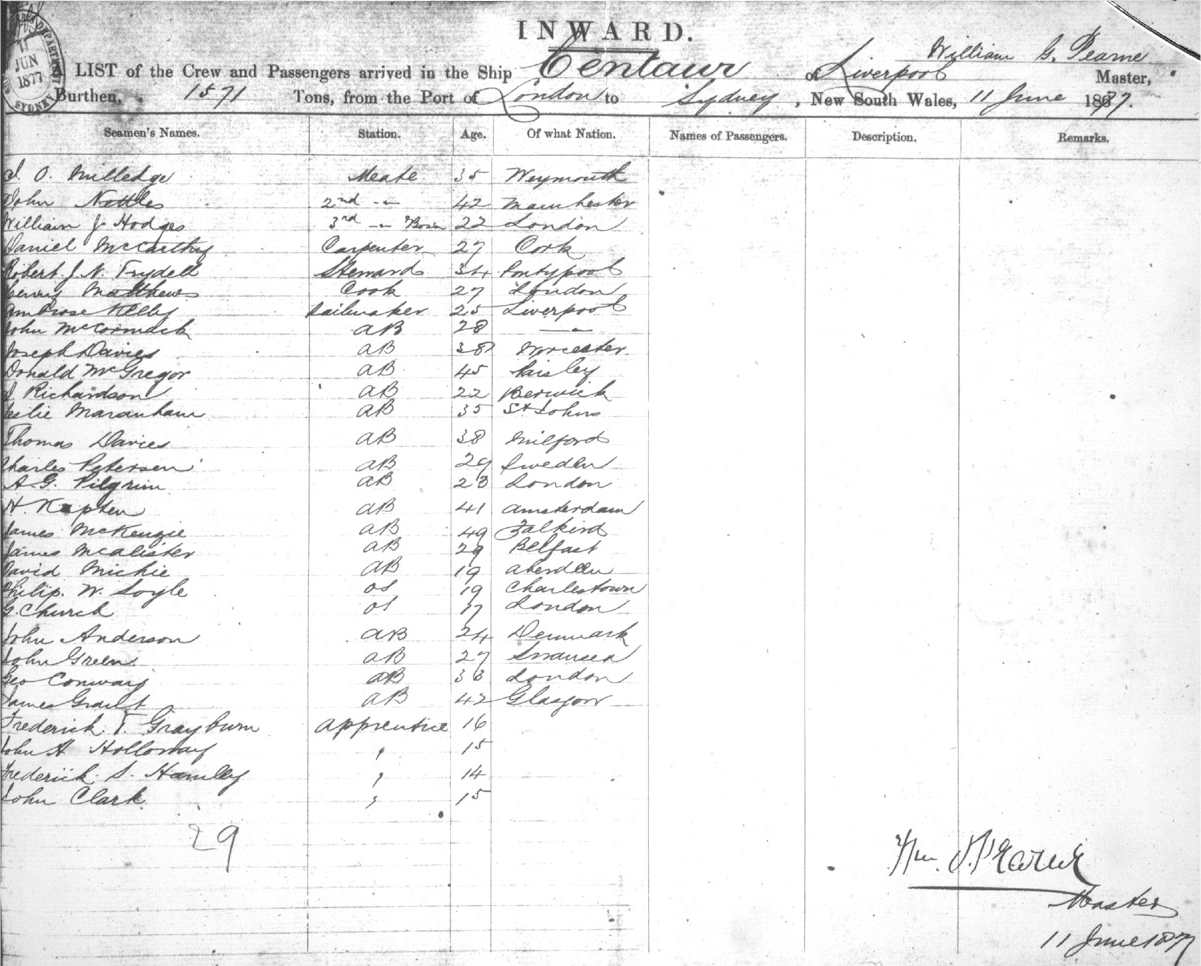 INWARD.
JUN
1877
SYDNEY
William G. Pearne
A LIST of the Crew and Passengers arrived in the Ship Centaur of Liverpool Master,
Burthen, 1571 Tons, from the Port of London to Sydney, New South Wales, 11 June 1877.
Seamen's Names. Station. Age. Of what Nation. Names of Passengers. Description. Remarks.
J. O. Milledge Mate 35 Weymouth
John Nattles 2nd -"- 42 Manchester
William J. Hodges 3rd -"- Bosn 22 London
Daniel McCarthy Carpenter 27 Cork
Robert J. N. Frydell Steward 34 Pontypool
Henry Matthews Cook 27 London
Ambrose Kelly Sailmaker 25 Liverpool
John McCormack AB 28 -"-
Joseph Davies AB 38 Worcester
Donald McGregor AB 45 Paisley
J. Richardson AB 22 Berwick
Leslie Maranham AB 35 St Johns
Thomas Davies AB 38 Milford
Charles Petersen AB 29 Sweden
A. G. Pilgrim AB 23 London
H. Kapten AB 41 Amsterdam
James McKenzie AB 49 Falkirk
James McAlister AB 29 Belfast
David Michie AB 19 Aberdeen
Philip W. Soyle OS 19 Charlestown
G. Church OS 17 London
John Anderson AB 24 Denmark
John Green AB 27 Swansea
Geo Conway AB 33 London
James AB 42 Glasgow
Frederick T. Grayburn Apprentice 16
John H Holloway " 15
Frederick S. Hamley " 14
John Clark " 15
29
Wm G. Pearne
Master
11 June 1877